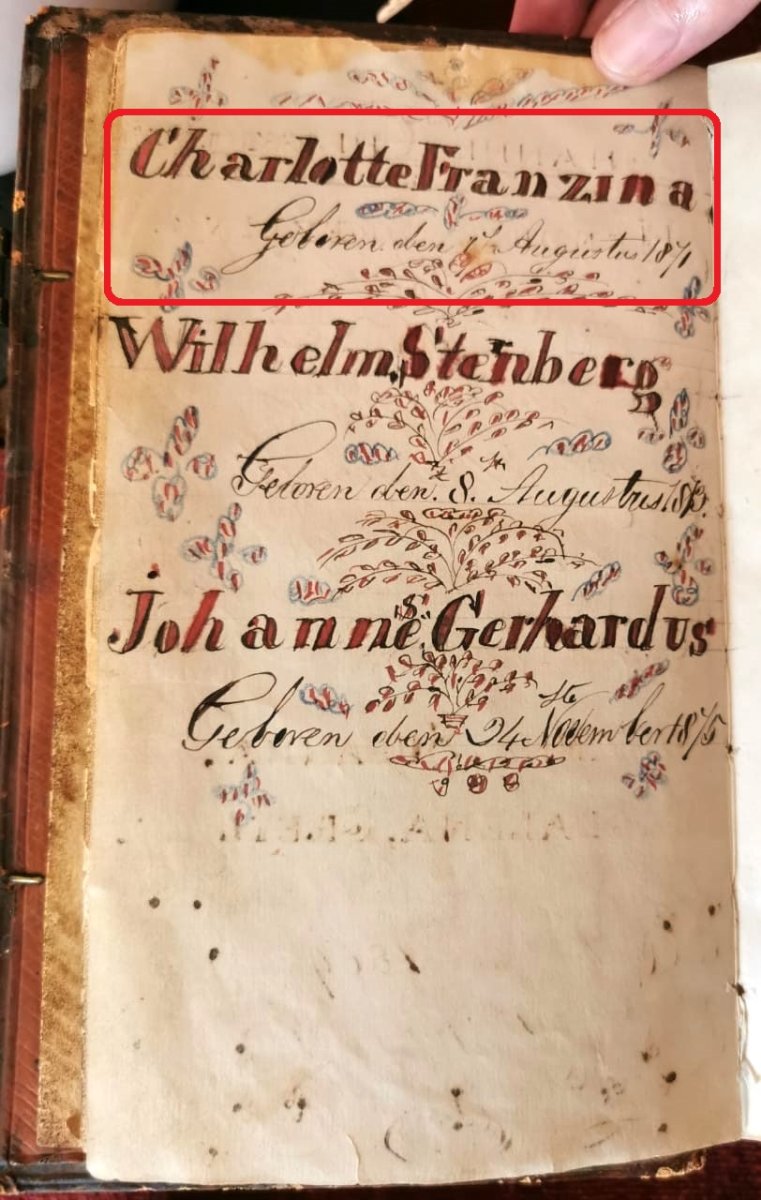 Charlotte Franzina
Geboren den 7de Augustus 1871
Wilhelm, Stenberg
Geboren den. 8. Augustus 1873.
Johannes, Gerhardus
Geboren den 24ste November 1875